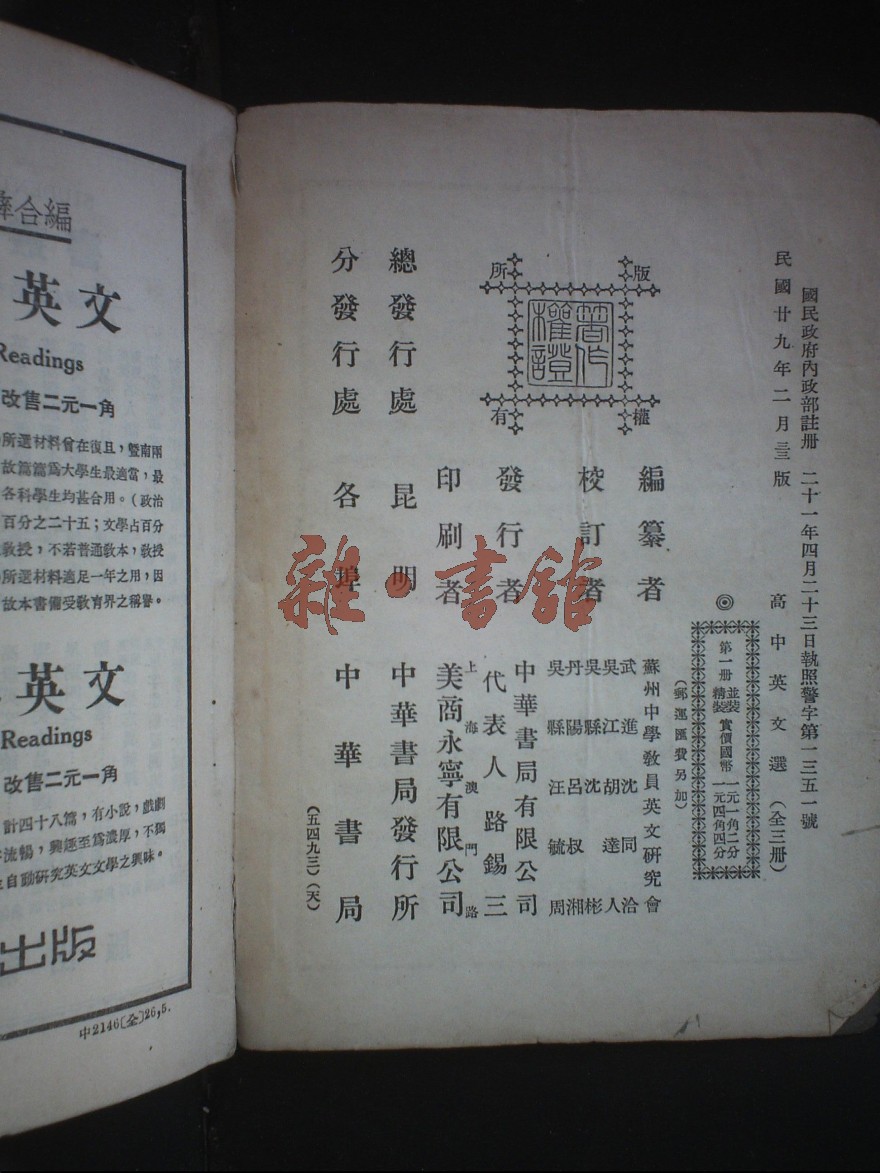 國民政府內政部註册 二十一年四月二十三日執照警字第一三五一號
民國廿九年二月三版
高中英文選 (全三册)
◎
第一册 並裝 精裝 實價國幣 一元一角二分 一元四角四分
(郵運匯費另加)
版權所有
著作權證
編纂者 蘇州中學教員英文研究會
校訂者
武進沈同洽
吳江胡達人
吳縣沈彬
丹陽呂叔湘
吳縣汪毓周
發行者 中華書局有限公司
代表人路錫三
印刷者 上海澳門路
美商永寧有限公司
總發行處 昆明 中華書局發行所
分發行處 各埠 中華書局
(五四九三)(天)
雜·書館
合編
英文
Readings
改售二元一角
所選材料曾在復旦,暨南兩
故篇篇爲大學生最適當,最
各科學生均甚合用。(政治
百分之二十五;文學占百分
教授,不若普通敎本,敎授
所選材料適足一年之用,因
故本書備受敎育界之稱譽。
英文
Readings
改售二元一角
計四十八篇,有小說,戲劇
流暢,興趣至爲濃厚,不獨
自動研究英文文學之興味。
出版
中2146(全)26,5.